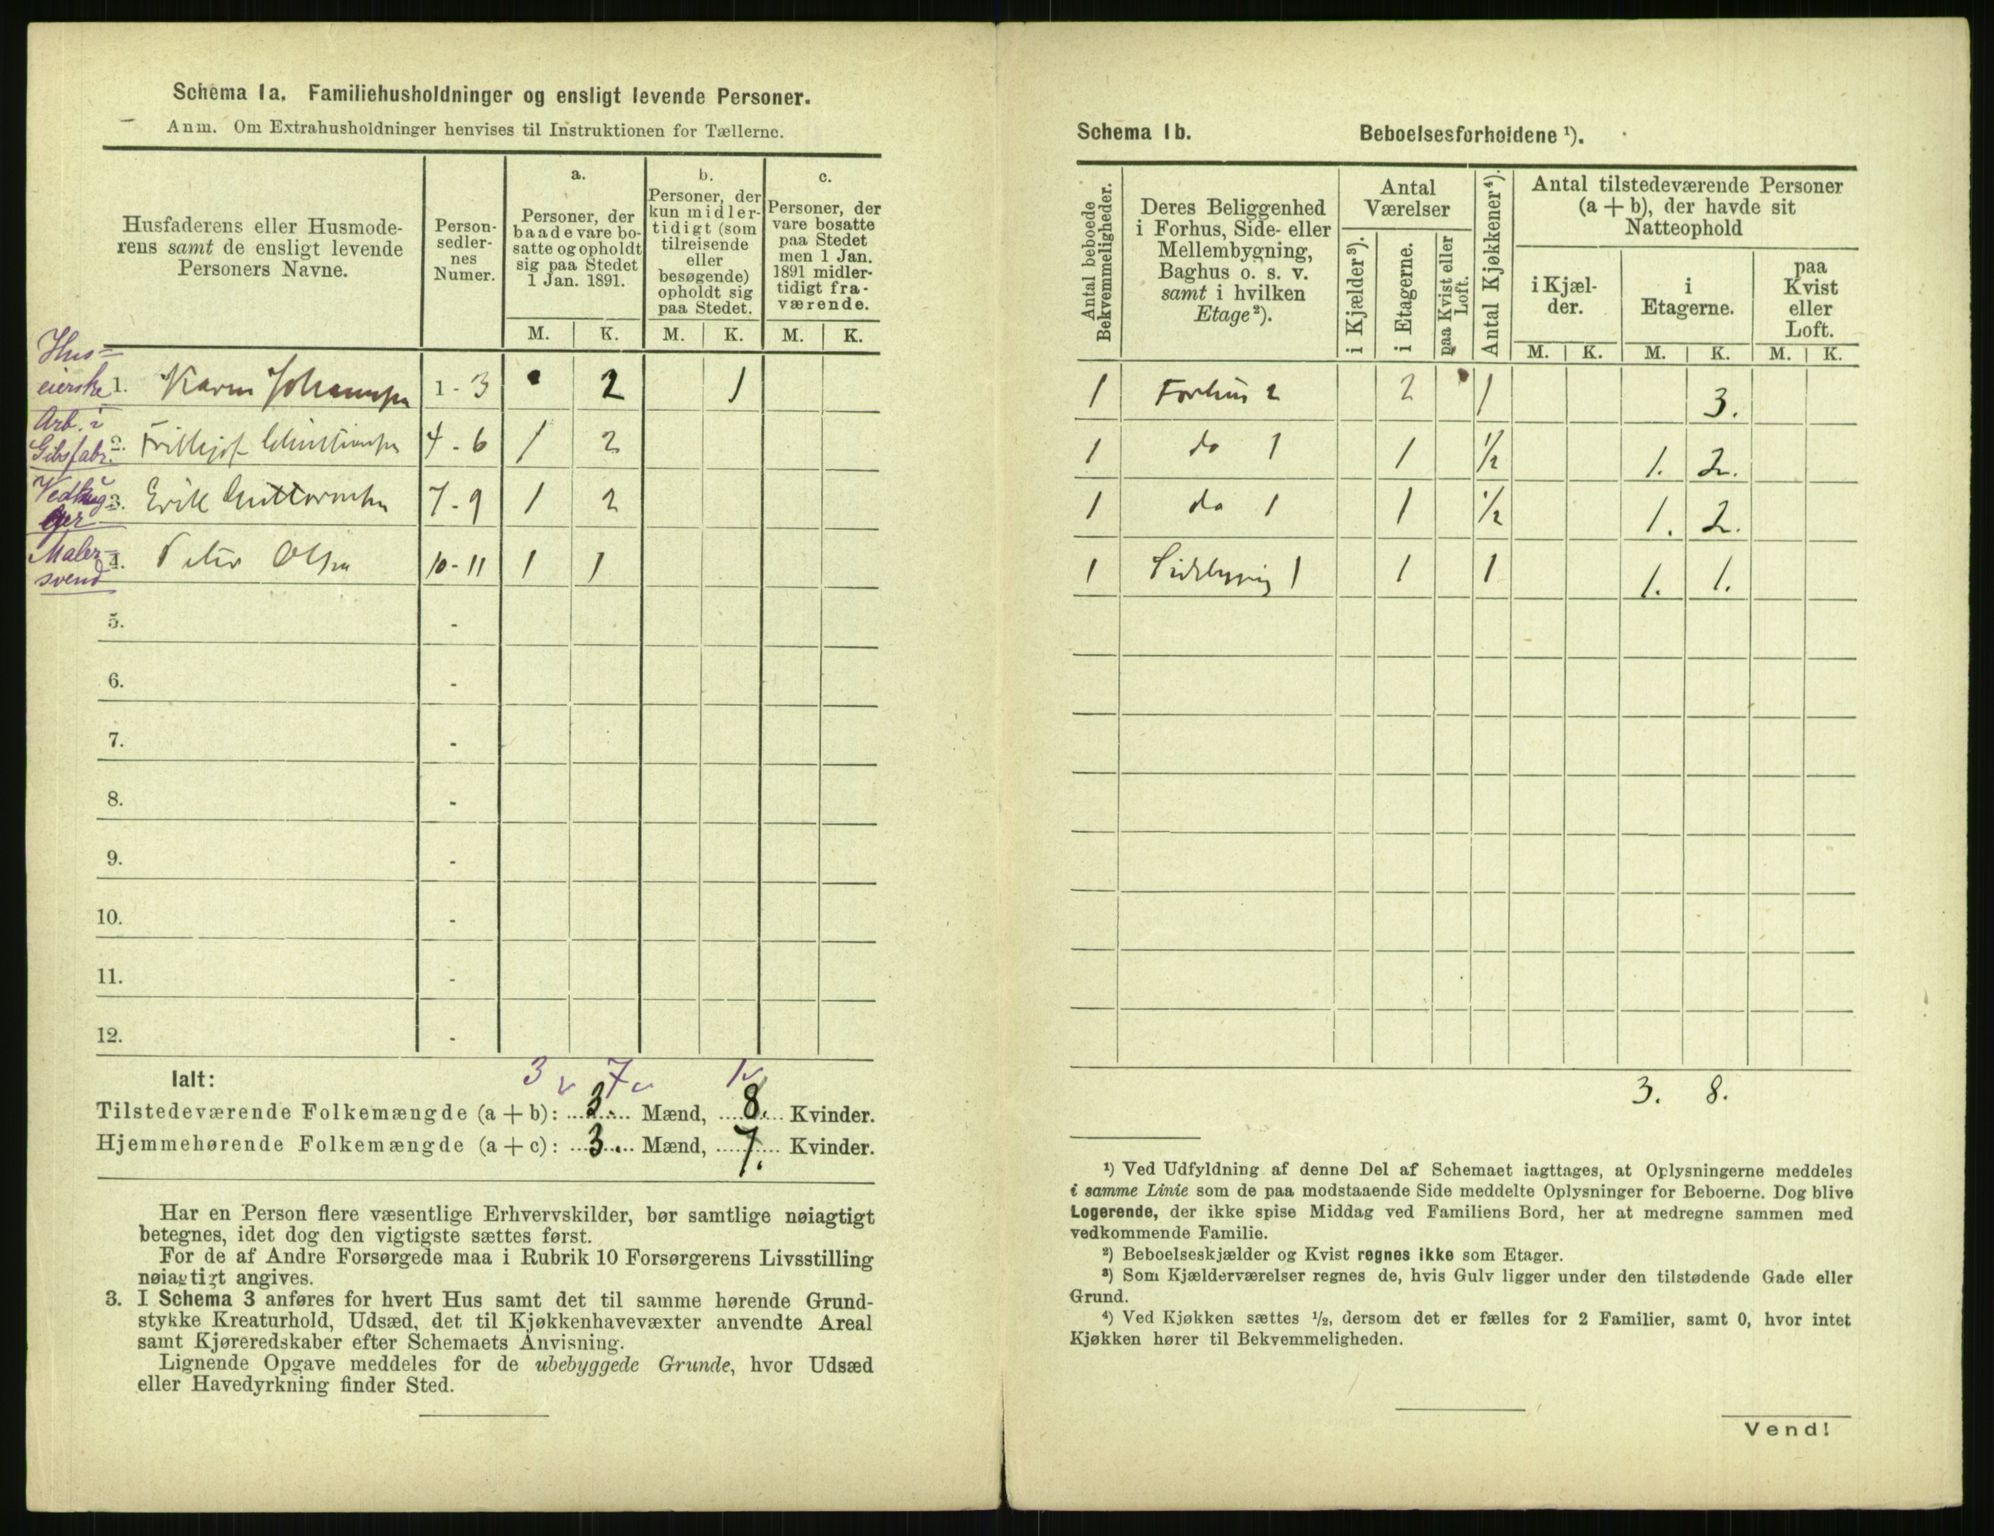 Schema 1a. Familiehusholdninger og ensligt levende Personer.
Anm. Om Extrahusholdninger henvises til Instruktionen for Tællerne.
Husfaderens eller Husmoderens samt de ensligt levende Personers Navne.
Personsedlernes Numer.
a.
Personer, der baade vare bosatte og opholdt sig paa Stedet 1 Jan. 1891.
b.
Personer, der kun midlertidigt (som tilreisende eller besøgende) opholdt sig paa Stedet.
c.
Personer, der vare bosatte paa Stedet men 1 Jan. 1891 midlertidigt fraværende.
M. K. M. K. M. K.
Huseierske 1. Karen Johannsen 1 - 3 2 1
Arb. i Gibsfabr. 2. Frithjof Christiansen 4 - 6 1 2
Vedhugger 3. Erik Guttormsen 7 - 9 1 2
Malersvend 4. Peter Olsen 10 - 11 1 1
5. -
6. -
7. -
8. -
9. -
10. -
11. -
12. -
Ialt: 3 7 1
Tilstedeværende Folkemængde (a + b): 3. Mænd, 8. Kvinder.
Hjemmehørende Folkemængde (a + c): 3. Mænd, 7. Kvinder.
Har en Person flere væsentlige Erhvervskilder, bør samtlige nøiagtigt
betegnes, idet dog den vigtigste sættes først.
For de af Andre Forsørgede maa i Rubrik 10 Forsørgerens Livsstilling
nøiagtigt angives.
3. I Schema 3 anføres for hvert Hus samt det til samme hørende Grund-
stykke Kreaturhold, Udsæd, det til Kjøkkenhavevæxter anvendte Areal
samt Kjøreredskaber efter Schemaets Anvisning.
Lignende Opgave meddeles for de ubebyggede Grunde, hvor Udsæd
eller Havedyrkning finder Sted.
Schema 1b. Beboelsesforholdene ¹).
Antal beboede Bekvemmeligheder.
Deres Beliggenhed i Forhus, Side- eller Mellembygning, Baghus o. s. v. samt i hvilken Etage²).
Antal Værelser
i Kjælder³).
i Etagerne.
paa Kvist eller Loft.
Antal Kjøkkener⁴).
Antal tilstedeværende Personer (a + b), der havde sit Natteophold
i Kjælder.
i Etagerne.
paa Kvist eller Loft.
M. K. M. K. M. K.
1 Forhus 2 2 1 3.
1 do 1 1 1/2 1. 2.
1 do 1 1 1/2 1. 2.
1 Sidebygnig 1 1 1 1. 1.
3. 8.
¹) Ved Udfyldning af denne Del af Schemaet iagttages, at Oplysningerne meddeles
i samme Linie som de paa modstaaende Side meddelte Oplysninger for Beboerne. Dog blive
Logerende, der ikke spise Middag ved Familiens Bord, her at medregne sammen med
vedkommende Familie.
²) Beboelseskjælder og Kvist regnes ikke som Etager.
³) Som Kjælderværelser regnes de, hvis Gulv ligger under den tilstødende Gade eller
Grund.
⁴) Ved Kjøkken sættes ½, dersom det er fælles for 2 Familier, samt 0, hvor intet
Kjøkken hører til Bekvemmeligheden.
Vend!